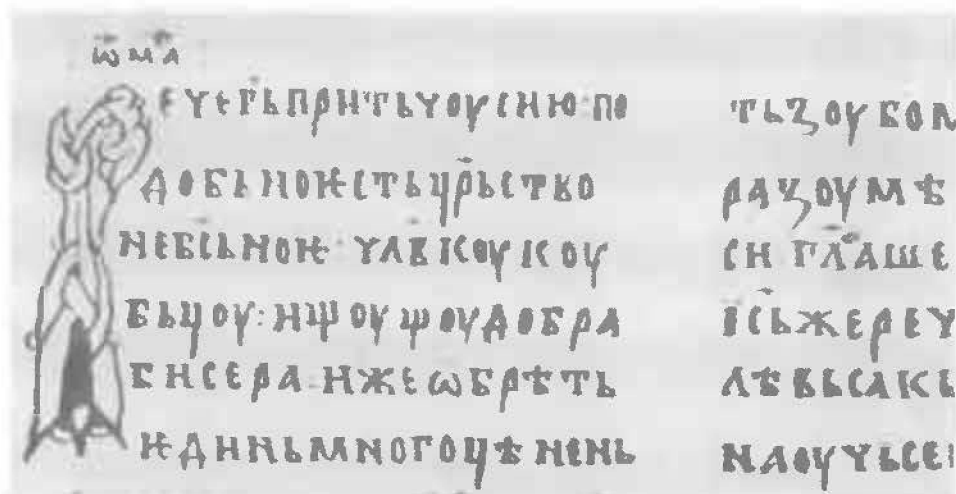 ѿ м҃а
Рече г҃ь притьчоу сию по
добьно ѥсть цр҃ьство
небсьноѥ · члв҃коу коу
бьцоу: ищоущоу добра
бисера · иже ѡбрѣть
ѥдинь многоцѣнень
ть зоубом
разоумѣ
си гл҃аше
ісь же реч
лѣ вьсакь
наоучьсе